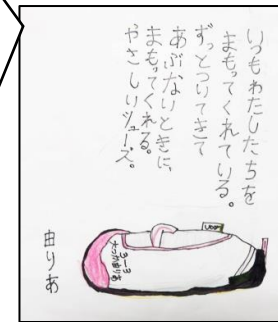 いつもわたしたちを
まもってくれている。
ずっとついてきて
あぶないときに、
まもってくれる。
やさしいシューズ。
由りあ